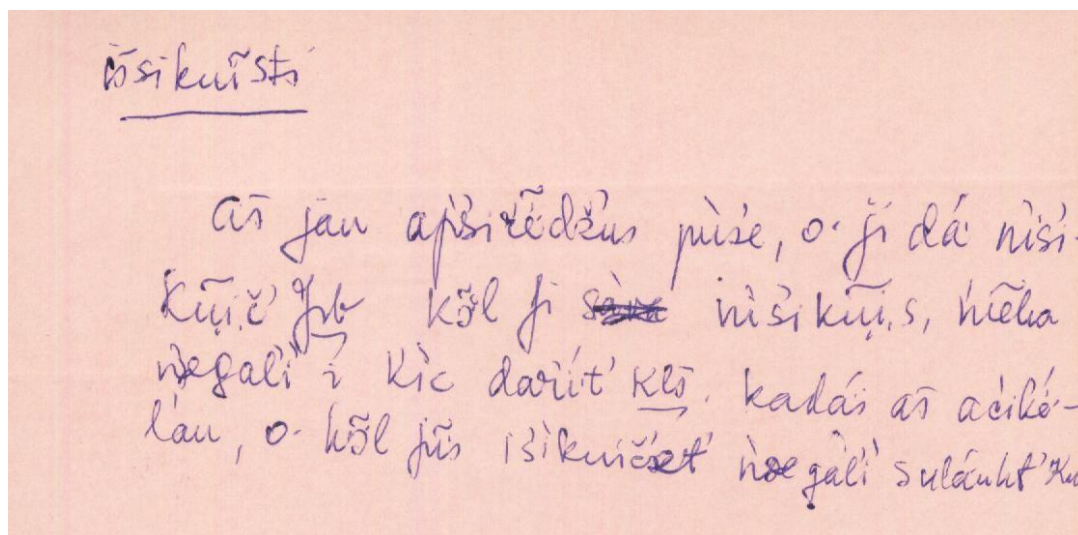 išsikuĩsti
aš jau apsirẽdžus pùse, o· ji dá· nìsi-
kũi.č Jrb kõ̃l ji nìsikũi.s, niẽka
negalì i Kìc darìt́ Klš. kadái aš acìkė́-
lau, o· kõ̃l jũs išìkuičet́ negàli suláukt́ Ku